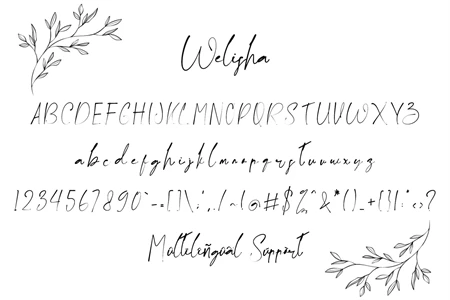 Welisha
ABCDEFGHIJKLMNOPQRSTUVWXYZ
abcdefghijklmnopqrstuvwxyz
1234567890`-=[]\;',./~!@#$%^&*()_+{}|:<>?
Multilingual Support